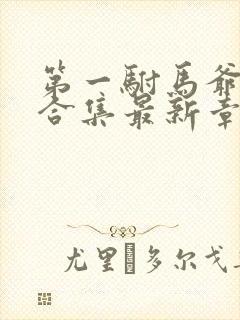 第一駙馬爺
合集最新章
尤里 多尔戈